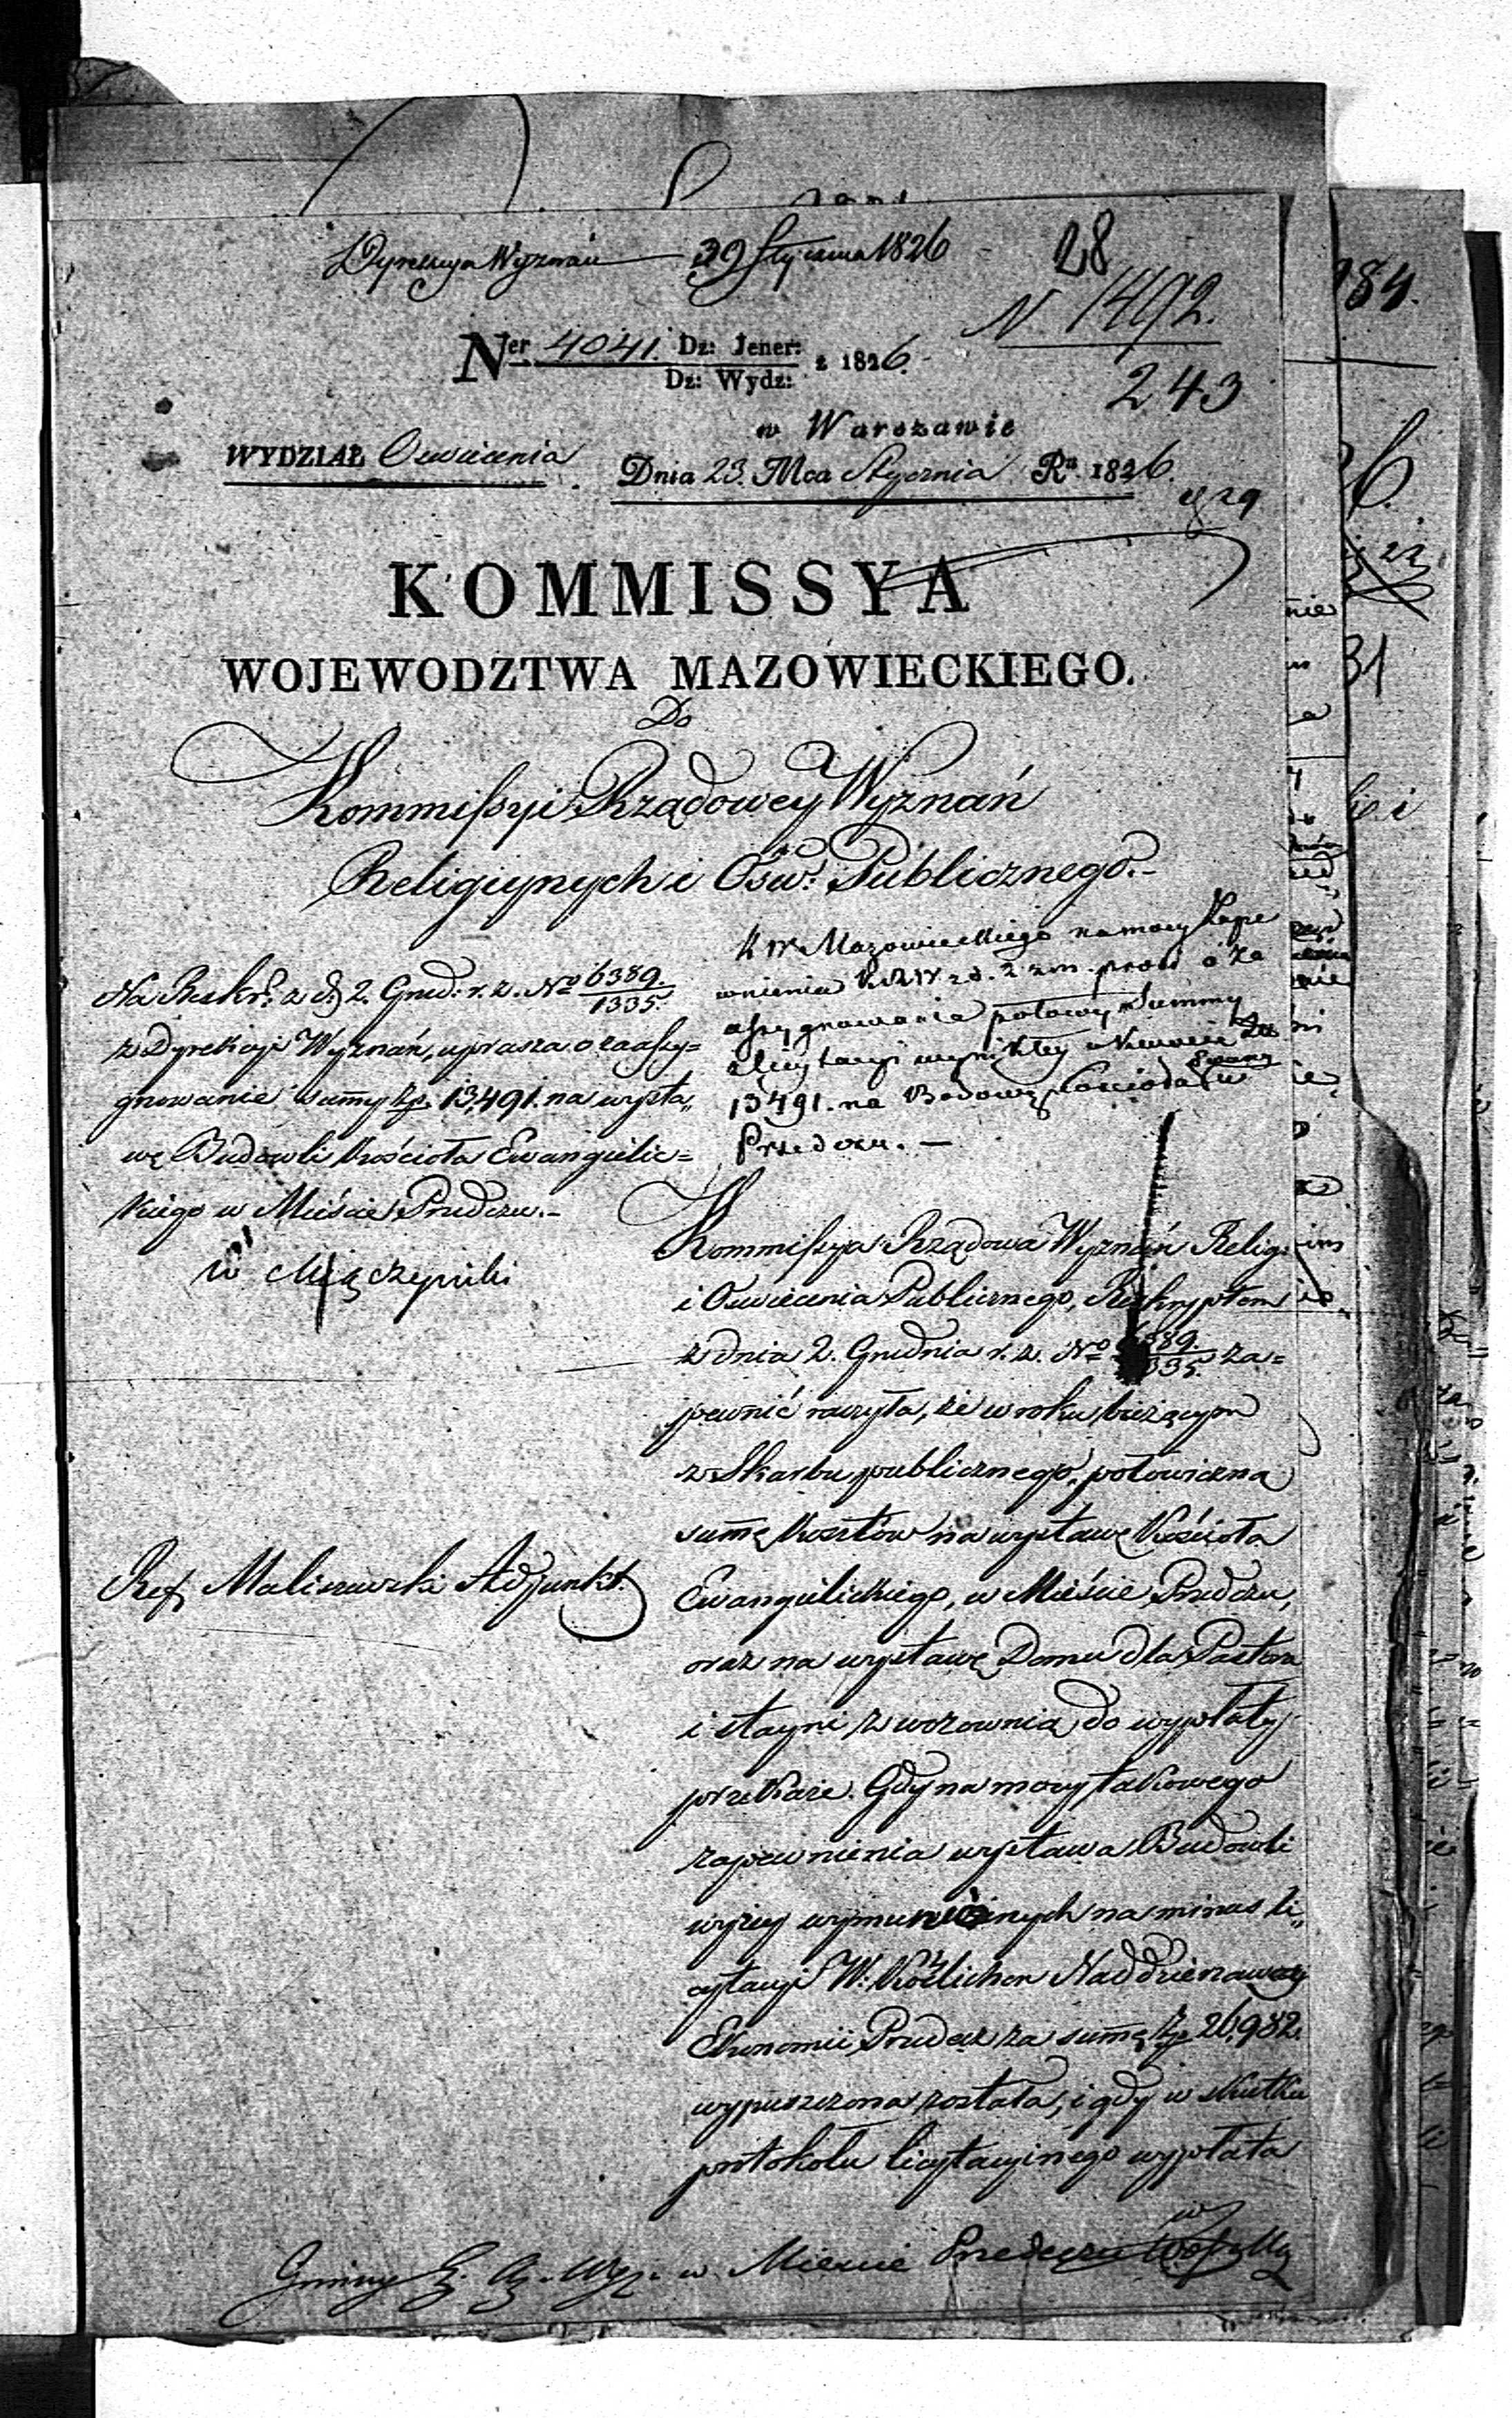 Dyrekcya Wyznań 29 Stycznia 1826
28
N 1492.
243
Ner 4041. Dz: Jener: z 1826.
Dz: Wydz:
w Warszawie
WYDZIAŁ Oswiecenia
Dnia 23. Mca Stycznia Ru 1826.
29
KOMMISSYA
WOJEWODZTWA MAZOWIECKIEGO.
Do
Kommissyi Rządowey Wyznań
Religiynych i Ośw: Publicznego.-
Na Reskr: z d. 2. Grud: r. z. No 6389/1335.
z Dyrekcyi Wyznań, uprasza o zaassy=
gnowanie sum̄y zp. 13,491. na wysta„
wę Budowli Kościoła Ewangielic=
kiego w Mieście Przedczu.-
W Mączyński
Ref. Maliszewski Adjunkt.
K W Mazowieckiego na mocy Zape
wnienia K R W z d. 2 z m. prosi o za
assygnowanie połowy Summy
z licytacyi wynikłey w kwocie
13491. na Budowę Kościoła Ewang w
Przedczu. —
Kommissya Rządowa Wyznań Relig:
i Oswiecenia Publicznego, Reskryptem
z dnia 2. Grudnia r. z. No 6389/1335. za=
pewnić raczyła, że w roku bieżącym
z Skarbu publicznego, połowiczną
sum̄ę kosztów na wystawę Kościoła
Ewangielickiego, w Mieście Przedczu,
oraz na wystawę Domu dla Pastora
i stayni z wozownią do wypłaty
przekaże. Gdy na mocy takowego
zapewnienia wystawa Budowli
wyżey wymienionych na minus li„
cytacyi W: Kozlicher Naddzierzawcy
Ekonomii Przedecz za sum̄ę zp 26,982.
wypuszczona została, i gdy w skutku
protokołu licytacyinego wypłata
Gminy E. A. Wyz. w Miescie Przedeczu